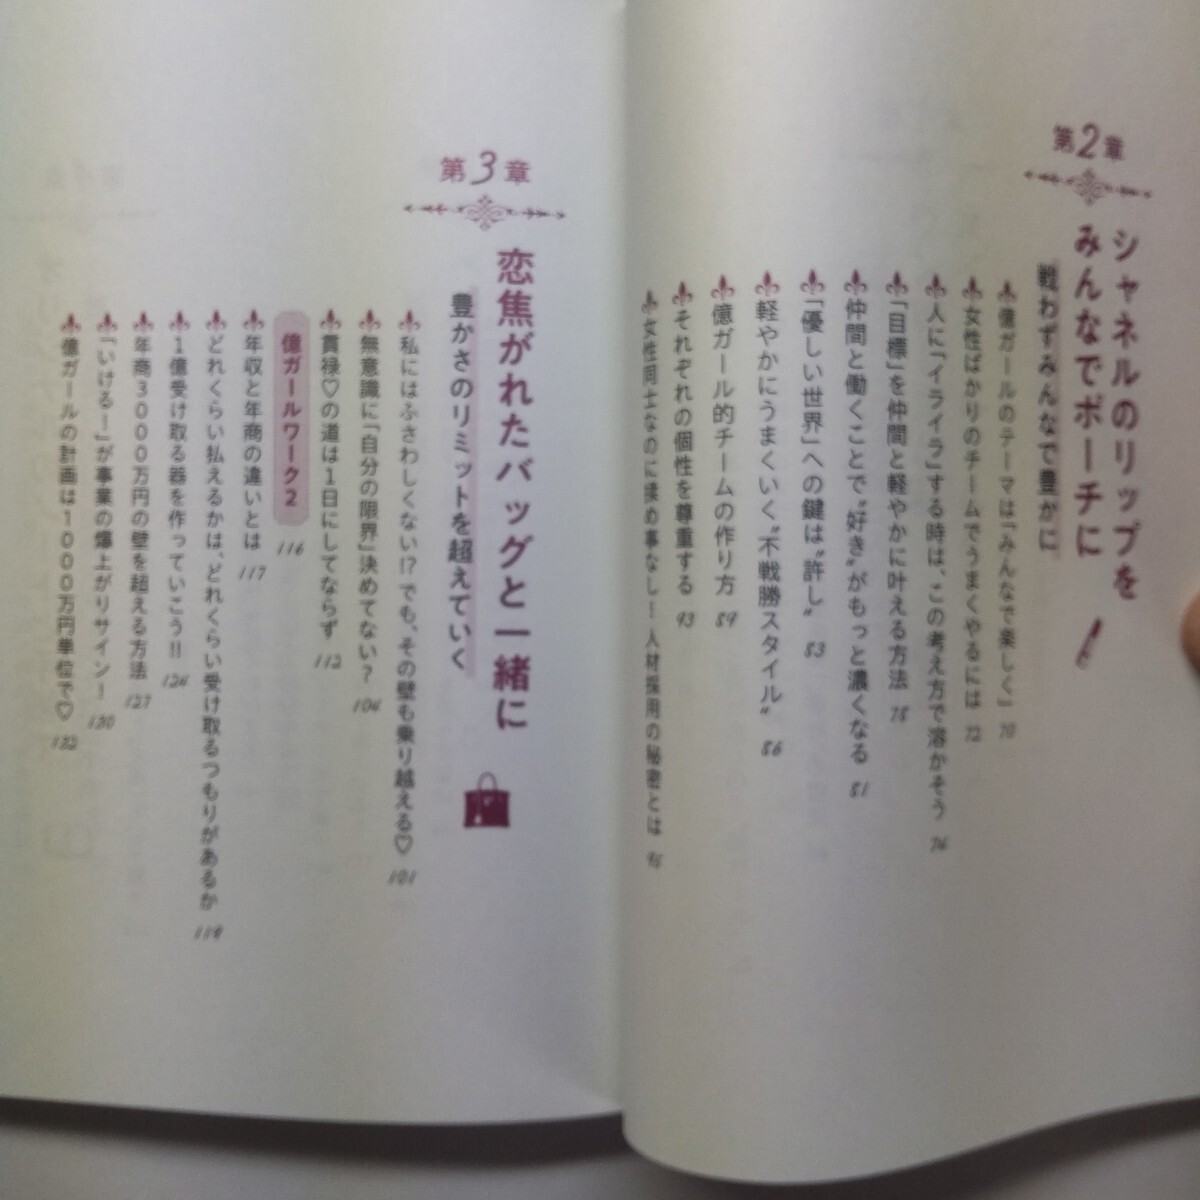 第2章
シャネルのリップを
みんなでポーチに
戦わずみんなで豊かに
億ガールのテーマは「みんなで楽しく」 70
女性ばかりのチームでうまくやるには 72
人に「イライラ」する時は、この考え方で溶かそう 76
「目標」を仲間と軽やかに叶える方法 78
仲間と働くことで〝好き〟がもっと濃くなる 81
「優しい世界」への鍵は〝許し〟 83
軽やかにうまくいく〝不戦勝スタイル〟 86
億ガール的チームの作り方 89
それぞれの個性を尊重する 93
女性同士なのに揉め事なし! 人材採用の秘密とは 95
第3章
恋焦がれたバッグと一緒に
豊かさのリミットを超えていく
私にはふさわしくない!? でも、その壁も乗り越える♡ 101
無意識に「自分の限界」決めてない? 106
貫禄♡の道は1日にしてならず 112
億ガールワーク2 116
年収と年商の違いとは 117
どれくらい払えるかは、どれくらい受け取るつもりがあるか 119
1億受け取る器を作っていこう!! 124
年商3000万円の壁を超える方法 127
「いける!」が事業の爆上がりサイン! 130
億ガールの計画は100万円単位で♡ 132